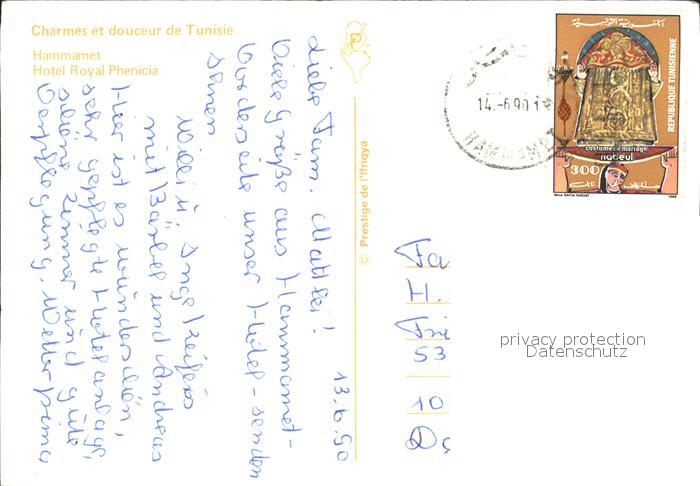 Charmes et douceur de Tunisie
Hammamet
Hotel Royal Phenicia
© Prestige de l'Ifriqya
13.6.90
Liebe Fam. Mattei!
Viele Grüße aus Hammamet-
Vorderseite unser Hotel - senden
Ihnen
Willi u. Inge
mit Bärbel und Andreas
Hier ist es wunderschön,
sehr gepflegte Hotelanlage,
schöne Zimmer und gute
Verpflegung. Wetter prima
14.-6.90
HAMMAMET
REPUBLIQUE TUNISIENNE
الجمهورية التونسية
costume de mariage
nabeul
300
Fa
H.
53
10
privacy protection
Datenschutz